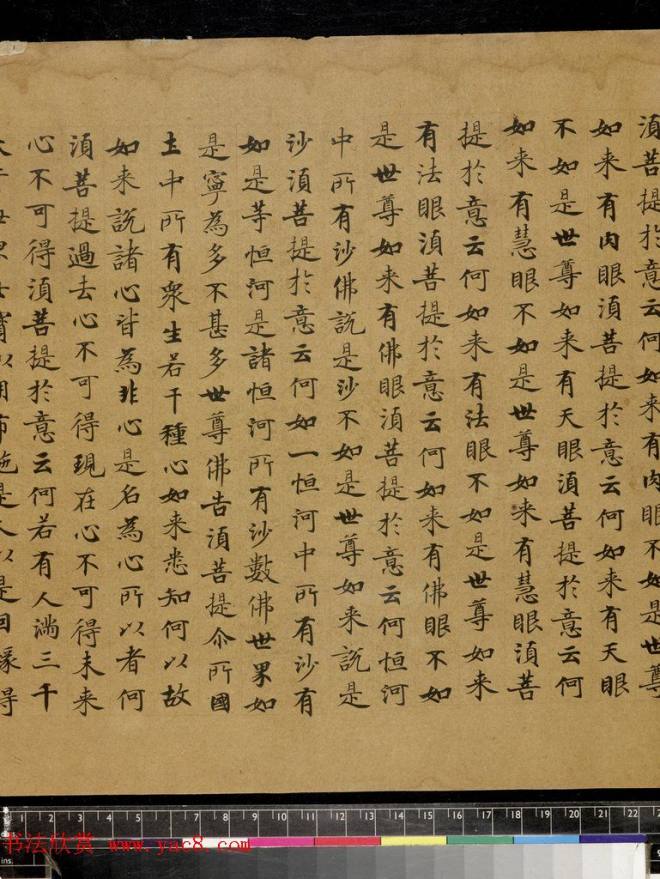 湏菩提於意云何如来有肉眼不如是世尊
如来有肉眼湏菩提於意云何如来有天眼
不如是世尊如来有天眼湏菩提於意云何
如来有慧眼不如是世尊如来有慧眼湏菩
提於意云何如来有法眼不如是世尊如来
有法眼湏菩提於意云何如来有佛眼不如
是世尊如来有佛眼湏菩提於意云何恒河
中所有沙佛說是沙不如是世尊如来說是
沙湏菩提於意云何如一恒河中所有沙有
如是等恒河是諸恒河所有沙數佛世界如
是寧為多不甚多世尊佛告湏菩提尒所國
土中所有衆生若干種心如来悉知何以故
如来說諸心皆為非心是名為心所以者何
湏菩提過去心不可得現在心不可得未来
心不可得湏菩提於意云何若有人滿三千
书法欣赏 www.yac8.com
1 2 3 4 5 6 7 8 9 10 11 12 13 14 15 16 17 18 19 20 21 22
ins.